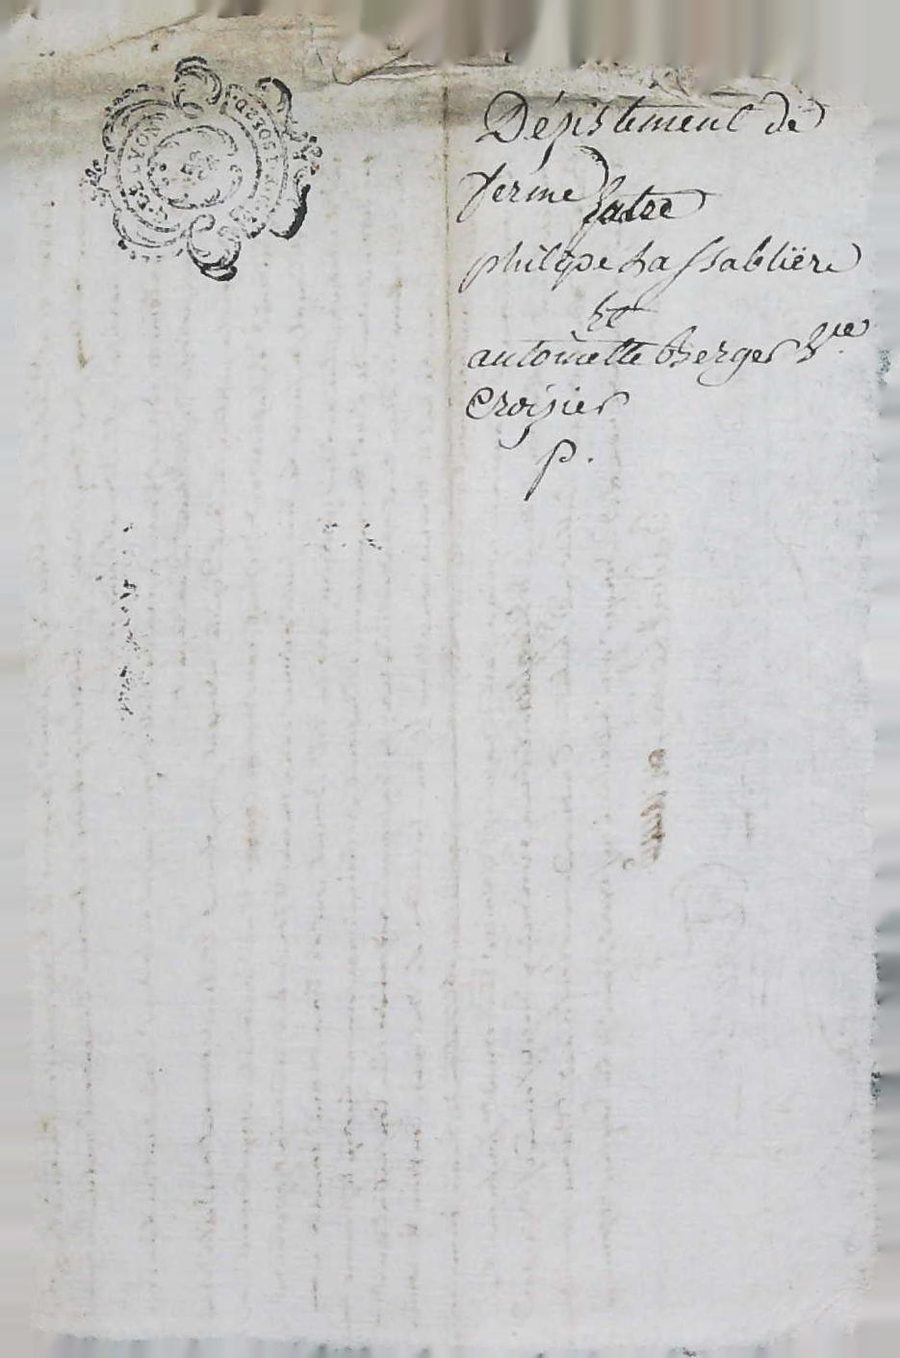 DE LYON
Dépistement de
ferme Entre
philipe La ssablière
Et
antoinette Berger Vve
Croizier
p.